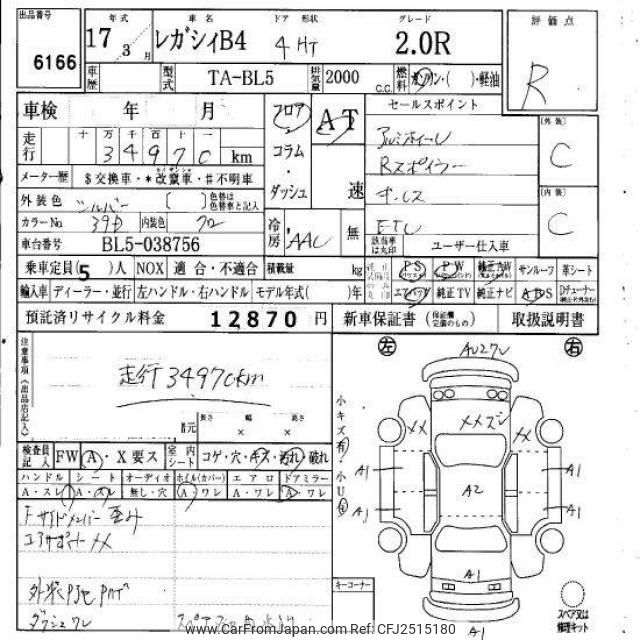 出品番号 年式 車名 ドア 形状 グレード 評価点
6166 17 3月 レガシィB4 4 HT 2.0R R
車歴 型式 TA-BL5 排気量 2000 C.C. 燃料 ガソリン・( )・軽油
車検 年 月 フロア・コラム・ダッシュ AT 速 セールスポイント
走行 十 万 千 百 十 一 アルミホイール [外装] C
3 4 9 7 0 km Rスポイラー
メーター歴 $交換車・*改竄車・#不明車 キーレス [内装] C
外装色 シルバー [ ] 色替は色替車と記入 冷房 AAC 無 ETC
カラーNo. 39D 内装色 クロ
車台番号 BL5-038756 該当車は丸印 ユーザー仕入車
乗車定員(5)人 NOX 適合・不適合 積載量 kg PS PW 純正AW サンルーフ 革シート
輸入車 ディーラー・並行 左ハンドル・右ハンドル モデル年式( )年 エアバッグ 純正TV 純正ナビ
預託済リサイクル料金 12870 円 新車保証書 (保証欄記載のもの) 取扱説明書
注意事項(出品店記入) 左 右
走行34970km
長さ 幅 高さ
× ×
小キズ有・小U有
検査員記入 FW A・X要ス 室内シート コゲ・穴・キズ・汚れ・破れ
ハンドル シート オーディオ ホイル(カバー) エアロ ドアミラー
A・スレ A・スレ 無し・穴 A・ワレ A・ワレ A・ワレ
Fサイドメンバー歪み
コアサポートXX
ダッシュワレ
キーコーナー
XX XX
A1 A1
A2
A1 A1
A1
A1
スペア又は修理キット
www.CarFromJapan.com - CFJ2515180